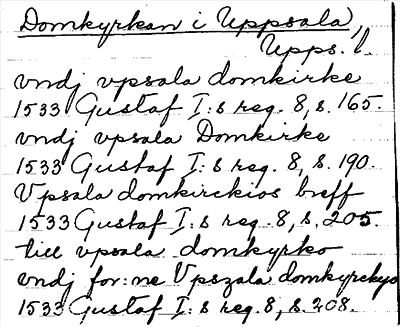 Domkyrkan i Uppsala,
Upps. l.
vndj vpsala domkirke
1533 Gustaf I:s reg. 8, s. 165.
vndj vpsala Domkirke
1533 Gustaf I:s reg. 8, s. 190.
Vpsala domkirckios breff
1533 Gustaf I:s reg. 8, s. 205
till vpsala domkyrko
vndj for:ne Vpszala domkyrckyo
1533 Gustaf I:s reg. 8, s. 208.